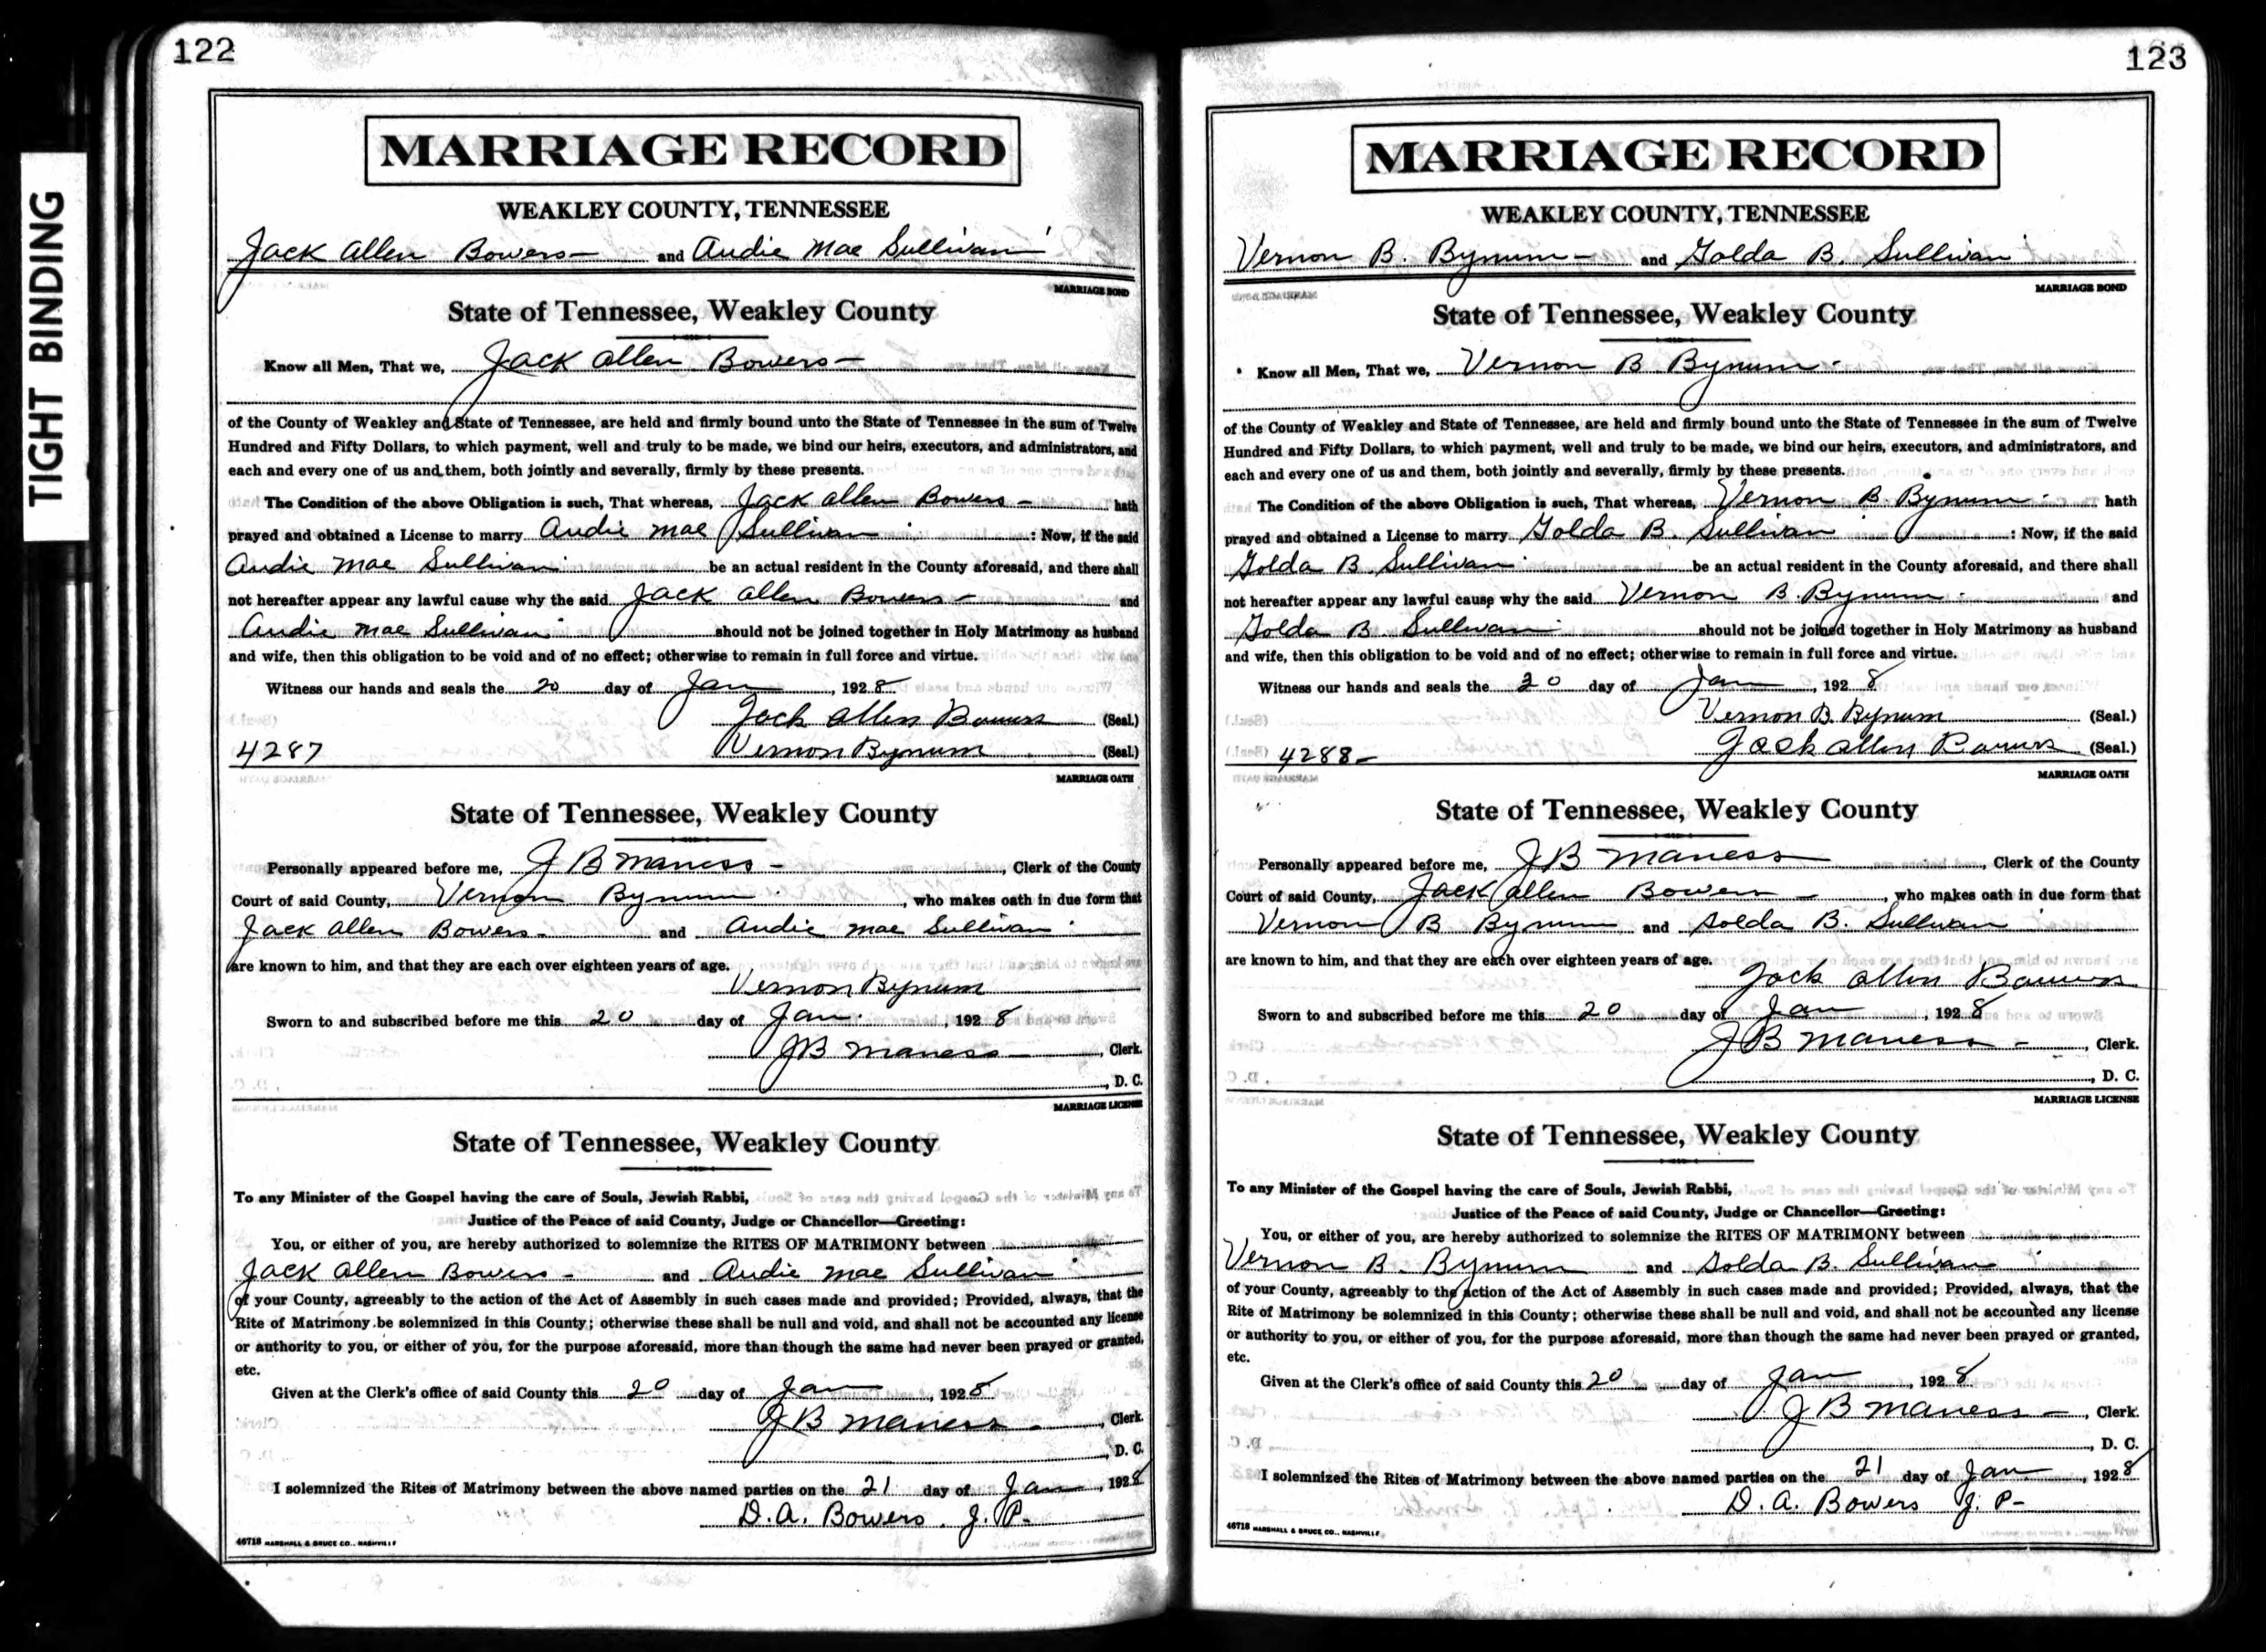 TIGHT BINDING
122
MARRIAGE RECORD
WEAKLEY COUNTY, TENNESSEE
Jack Allen Bowers — and Audie Mae Sullivan
MARRIAGE BOND
State of Tennessee, Weakley County
Know all Men, That we, Jack Allen Bowers —
of the County of Weakley and State of Tennessee, are held and firmly bound unto the State of Tennessee in the sum of Twelve
Hundred and Fifty Dollars, to which payment, well and truly to be made, we bind our heirs, executors, and administrators, and
each and every one of us and them, both jointly and severally, firmly by these presents.
The Condition of the above Obligation is such, That whereas, Jack Allen Bowers — hath
prayed and obtained a License to marry Audie Mae Sullivan : Now, if the said
Audie Mae Sullivan be an actual resident in the County aforesaid, and there shall
not hereafter appear any lawful cause why the said Jack Allen Bowers — and
Audie Mae Sullivan should not be joined together in Holy Matrimony as husband
and wife, then this obligation to be void and of no effect; otherwise to remain in full force and virtue.
Witness our hands and seals the 20 day of Jan, 1928
Jack Allen Bowers (Seal.)
4287 Vernon Bynum (Seal.)
MARRIAGE OATH
State of Tennessee, Weakley County
Personally appeared before me, J B Maness —, Clerk of the County
Court of said County, Vernon Bynum, who makes oath in due form that
Jack Allen Bowers — and Audie Mae Sullivan
are known to him, and that they are each over eighteen years of age.
Vernon Bynum
Sworn to and subscribed before me this 20 day of Jan., 1928
J B Maness —, Clerk.
, D. C.
MARRIAGE LICENSE
State of Tennessee, Weakley County
To any Minister of the Gospel having the care of Souls, Jewish Rabbi,
Justice of the Peace of said County, Judge or Chancellor—Greeting:
You, or either of you, are hereby authorized to solemnize the RITES OF MATRIMONY between
Jack Allen Bowers — and Audie Mae Sullivan
of your County, agreeably to the action of the Act of Assembly in such cases made and provided; Provided, always, that the
Rite of Matrimony be solemnized in this County; otherwise these shall be null and void, and shall not be accounted any license
or authority to you, or either of you, for the purpose aforesaid, more than though the same had never been prayed or granted,
etc.
Given at the Clerk's office of said County this 20 day of Jan, 1928
J B Maness —, Clerk.
, D. C.
I solemnized the Rites of Matrimony between the above named parties on the 21 day of Jan, 1928
D. A. Bowers. J. P—
46718 MARSHALL & BRUCE CO., NASHVILLE
123
MARRIAGE RECORD
WEAKLEY COUNTY, TENNESSEE
Vernon B. Bynum — and Golda B. Sullivan
MARRIAGE BOND
State of Tennessee, Weakley County
Know all Men, That we, Vernon B Bynum -
of the County of Weakley and State of Tennessee, are held and firmly bound unto the State of Tennessee in the sum of Twelve
Hundred and Fifty Dollars, to which payment, well and truly to be made, we bind our heirs, executors, and administrators, and
each and every one of us and them, both jointly and severally, firmly by these presents.
The Condition of the above Obligation is such, That whereas, Vernon B. Bynum - hath
prayed and obtained a License to marry Golda B. Sullivan : Now, if the said
Golda B. Sullivan be an actual resident in the County aforesaid, and there shall
not hereafter appear any lawful cause why the said Vernon B. Bynum - and
Golda B. Sullivan should not be joined together in Holy Matrimony as husband
and wife, then this obligation to be void and of no effect; otherwise to remain in full force and virtue.
Witness our hands and seals the 20 day of Jan, 1928
Vernon B. Bynum (Seal.)
4288 — Jack Allen Bowers (Seal.)
MARRIAGE OATH
State of Tennessee, Weakley County
Personally appeared before me, J B Maness, Clerk of the County
Court of said County, Jack Allen Bowers —, who makes oath in due form that
Vernon B Bynum and Golda B. Sullivan
are known to him, and that they are each over eighteen years of age.
Jack Allen Bowers
Sworn to and subscribed before me this 20 day of Jan, 1928
J B Maness —, Clerk.
, D. C.
MARRIAGE LICENSE
State of Tennessee, Weakley County
To any Minister of the Gospel having the care of Souls, Jewish Rabbi,
Justice of the Peace of said County, Judge or Chancellor—Greeting:
You, or either of you, are hereby authorized to solemnize the RITES OF MATRIMONY between
Vernon B. Bynum and Golda B. Sullivan
of your County, agreeably to the action of the Act of Assembly in such cases made and provided; Provided, always, that the
Rite of Matrimony be solemnized in this County; otherwise these shall be null and void, and shall not be accounted any license
or authority to you, or either of you, for the purpose aforesaid, more than though the same had never been prayed or granted,
etc.
Given at the Clerk's office of said County this 20 day of Jan, 1928
J B Maness —, Clerk.
, D. C.
I solemnized the Rites of Matrimony between the above named parties on the 21 day of Jan, 1928
D. A. Bowers J. P—
46718 MARSHALL & BRUCE CO., NASHVILLE